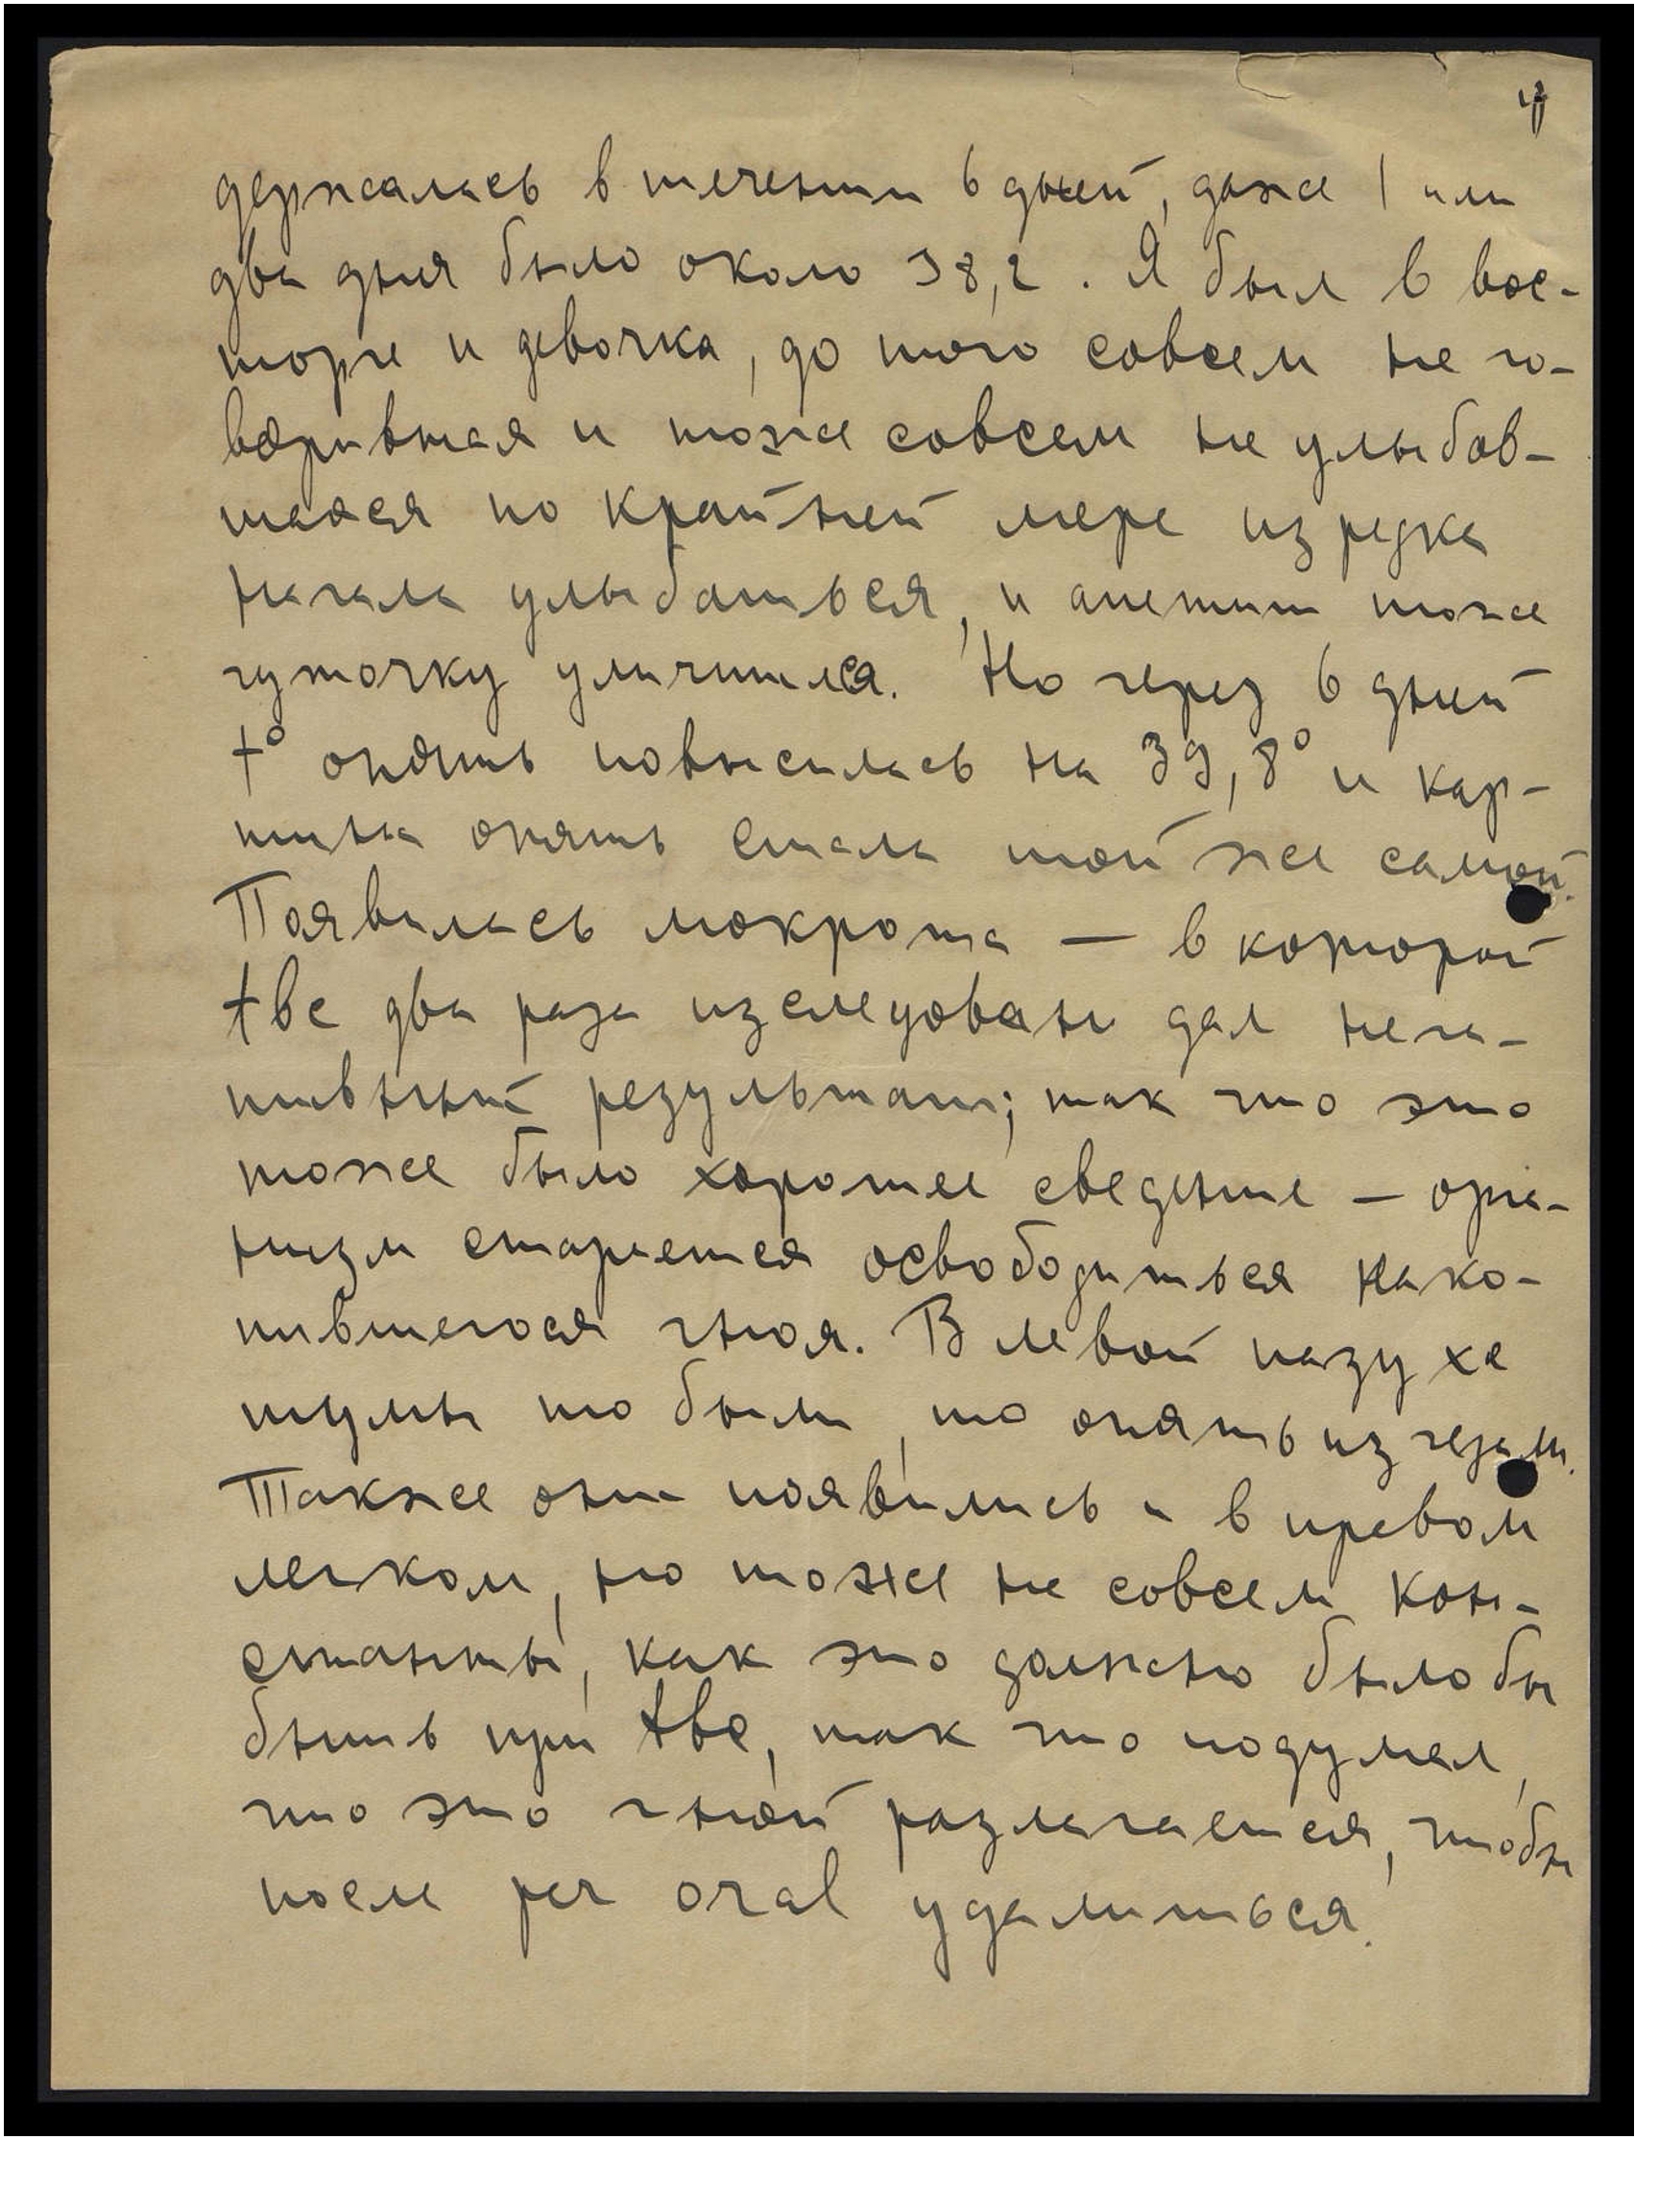 4
держалась в течении 6 дней, даже 1 или
два дня было около 38,2. Я был в вос-
торге и девочка, до того совсем не го-
ворившая и тоже совсем не улыбав-
шаяся по крайней мере изредка
начала улыбаться, и апетит тоже
чуточку улучшился. Но через 6 дней
t° опять повысилась на 39,8° и кар-
тина опять стала той же самой.
Появилась мокрота — в которой
tbc два раза изследован дал нега-
тивный результат; так что это
тоже было хорошее сведение — орга-
низм старается освободиться нако-
пившегося гноя. В левой пазухе
шумы то были, то опять изчезли.
Также они появились и в правом
легком, но тоже не совсем кон-
станты, как это должно было бы
быть при tbc, так что подумал,
что это гной разлагается, чтобы
после per oral удалиться.